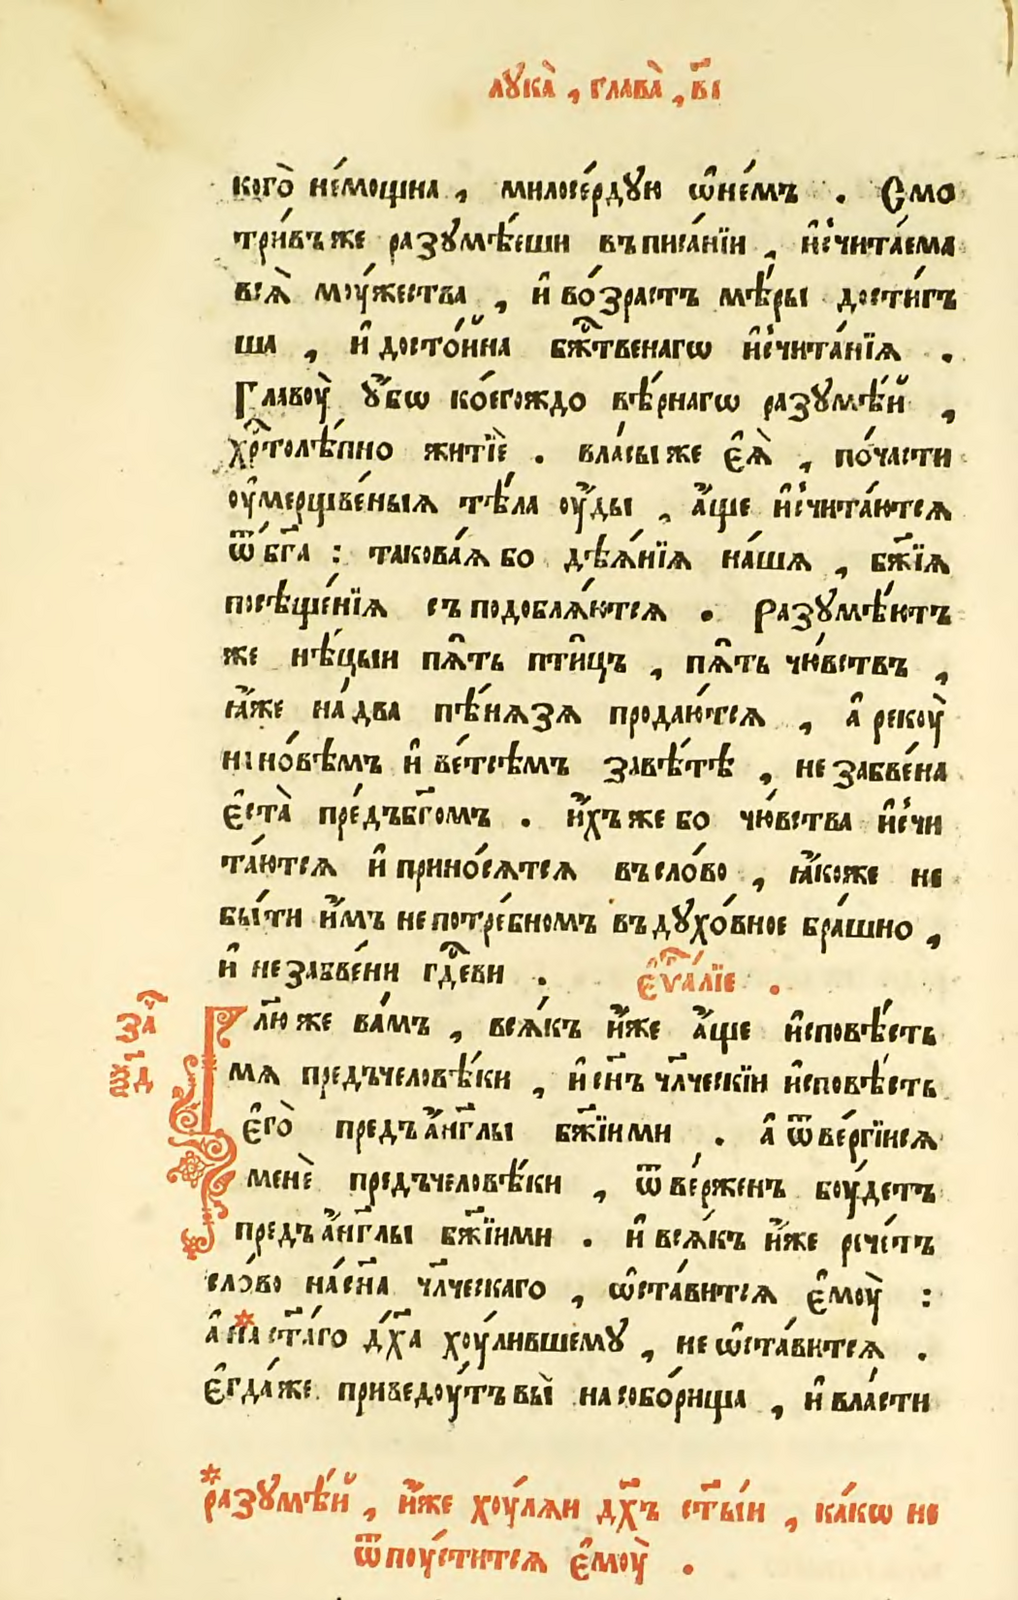 лꙋка̀ , глава̀ , в҃і
кого̀ не́мощна , милосе́рдꙋю ѡ҆не́мъ . Смо
три́въже разꙋмѣ́еши въписа́нїи , и҆счита́ема
всѧ̀ моу́жества , и҆ во́зрастъ мѣ́ры дости́гъ
ша , и҆ досто́йна бж҃твенагѡ и҆счита́нїѧ .
Главоу̀ ᲂу҆́бѡ ко́егождо вѣ́рнагѡ разꙋмѣ́й ,
хрⷭ҇толѣ́пно житїѐ . вла́сыже є҆ѧ̀ , по́части
оу҆мерщве́ныѧ тѣ́ла оу҆́ды , а҆́ще и҆счита́ютсѧ
ѿ бг҃а : такова́ѧ бо дѣѧ́нїѧ на́шѧ , бж҃їѧ
посѣще́нїѧ съподоблѧ́ютсѧ . Разꙋмѣ́ютъ
же нѣ́цыи пѧ҆ть пти҆цъ , пѧ҆ть чю́вствъ ,
ꙗ҆́же на́ два пѣ́нѧзѧ продаю́тсѧ , а҆ рекоу̀
но́вѣмъ и҆ ве́тсѣмъ завѣ́тѣ , не забве́на
є҆ста̀ пре́дъ бг҃омъ . и҆́хъже бо чю́вства и҆счи
та́ютсѧ и҆ прино́сѧтсѧ въсло́во , ꙗ҆́коже не
бы́ти и҆́мъ непотре́бномъ въдꙋхо́вное бра́шно ,
и҆ незабве́ни гдⷭ҇еви . є҆ѵⷢ҇а́лїе .
Глю́же ва́мъ , всѧ́къ и҆́же а҆́ще и҆сповѣ́сть
за҃
ѯ҃д
мѧ предъчеловѣ́ки , и҆ сн҃ъ чл҃ческїи и҆сповѣ́сть
є҆го̀ предъ а҆́нг҃лы бж҃їими . а҆ ѿве́ргїисѧ
менѐ предъчеловѣ́ки , ѿве́рженъ боу́детъ
предъ а҆́нг҃лы бж҃їими . и҆ всѧ́къ и҆́же рече́тъ
сло́во на сн҃а чл҃ческаго , ѡ҆ста́витсѧ є҆моу̀ :
а҆ * на ст҃а́го дх҃а хоу́лившемꙋ , не ѡ҆ста́витсѧ .
Є҆гда́же приведоу́тъ вы̀ на собо́рища , и҆ вла́сти
* разꙋмѣ́й , и҆́же хоу́лѧи дх҃ъ ст҃ы́и , ка́кѡ не
ѿпоу́ститсѧ є҆моу̀ .